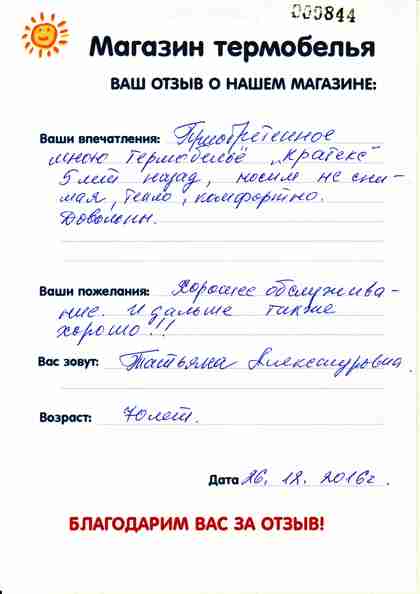 000844
Магазин термобелья
ВАШ ОТЗЫВ О НАШЕМ МАГАЗИНЕ:
Ваши впечатления: Приобретенное
мною термобельё „Кратекс"
5 лет назад, носим не сни-
мая, тепло, комфортно.
Довольны.
Ваши пожелания: Хорошее обслужива-
ние. И дальше также
хорошо!!!
Вас зовут: Татьяна Александровна
Возраст: 70 лет.
Дата 26. 12. 2016г.
БЛАГОДАРИМ ВАС ЗА ОТЗЫВ!